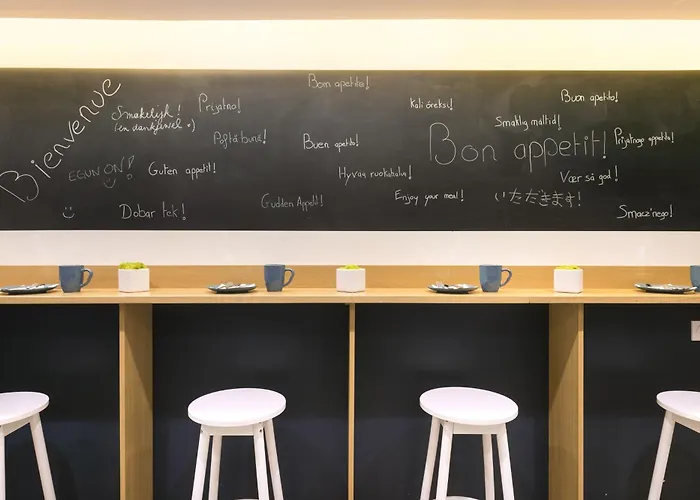 Bienvenue
Smakelijk!
(en dankjewel :)
EGUN ON!
Dobar tek!
Prijatno!
Poftă bună!
Guten appetit!
Bom apetite!
Buen apetito!
Hyvää ruokahalua!
Gudden Appetit!
Kali óreksi!
Enjoy your meal!
Smaklig måltid!
Bon appetit!
いただきます!
Buon appetito!
Prijatnogo appetita!
Vær så god!
Smacz'nego!